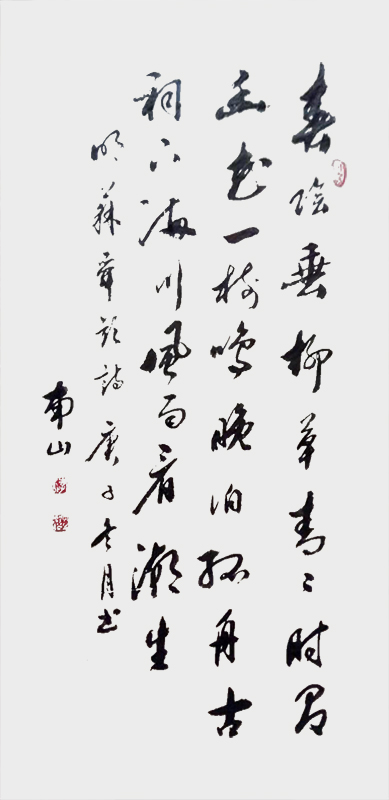 春陰垂柳草青青时有
幽花一樹鳴晚泊孤舟古
祠下满川風雨看潮生
明蘇舜欽詩庚子冬月书
南山